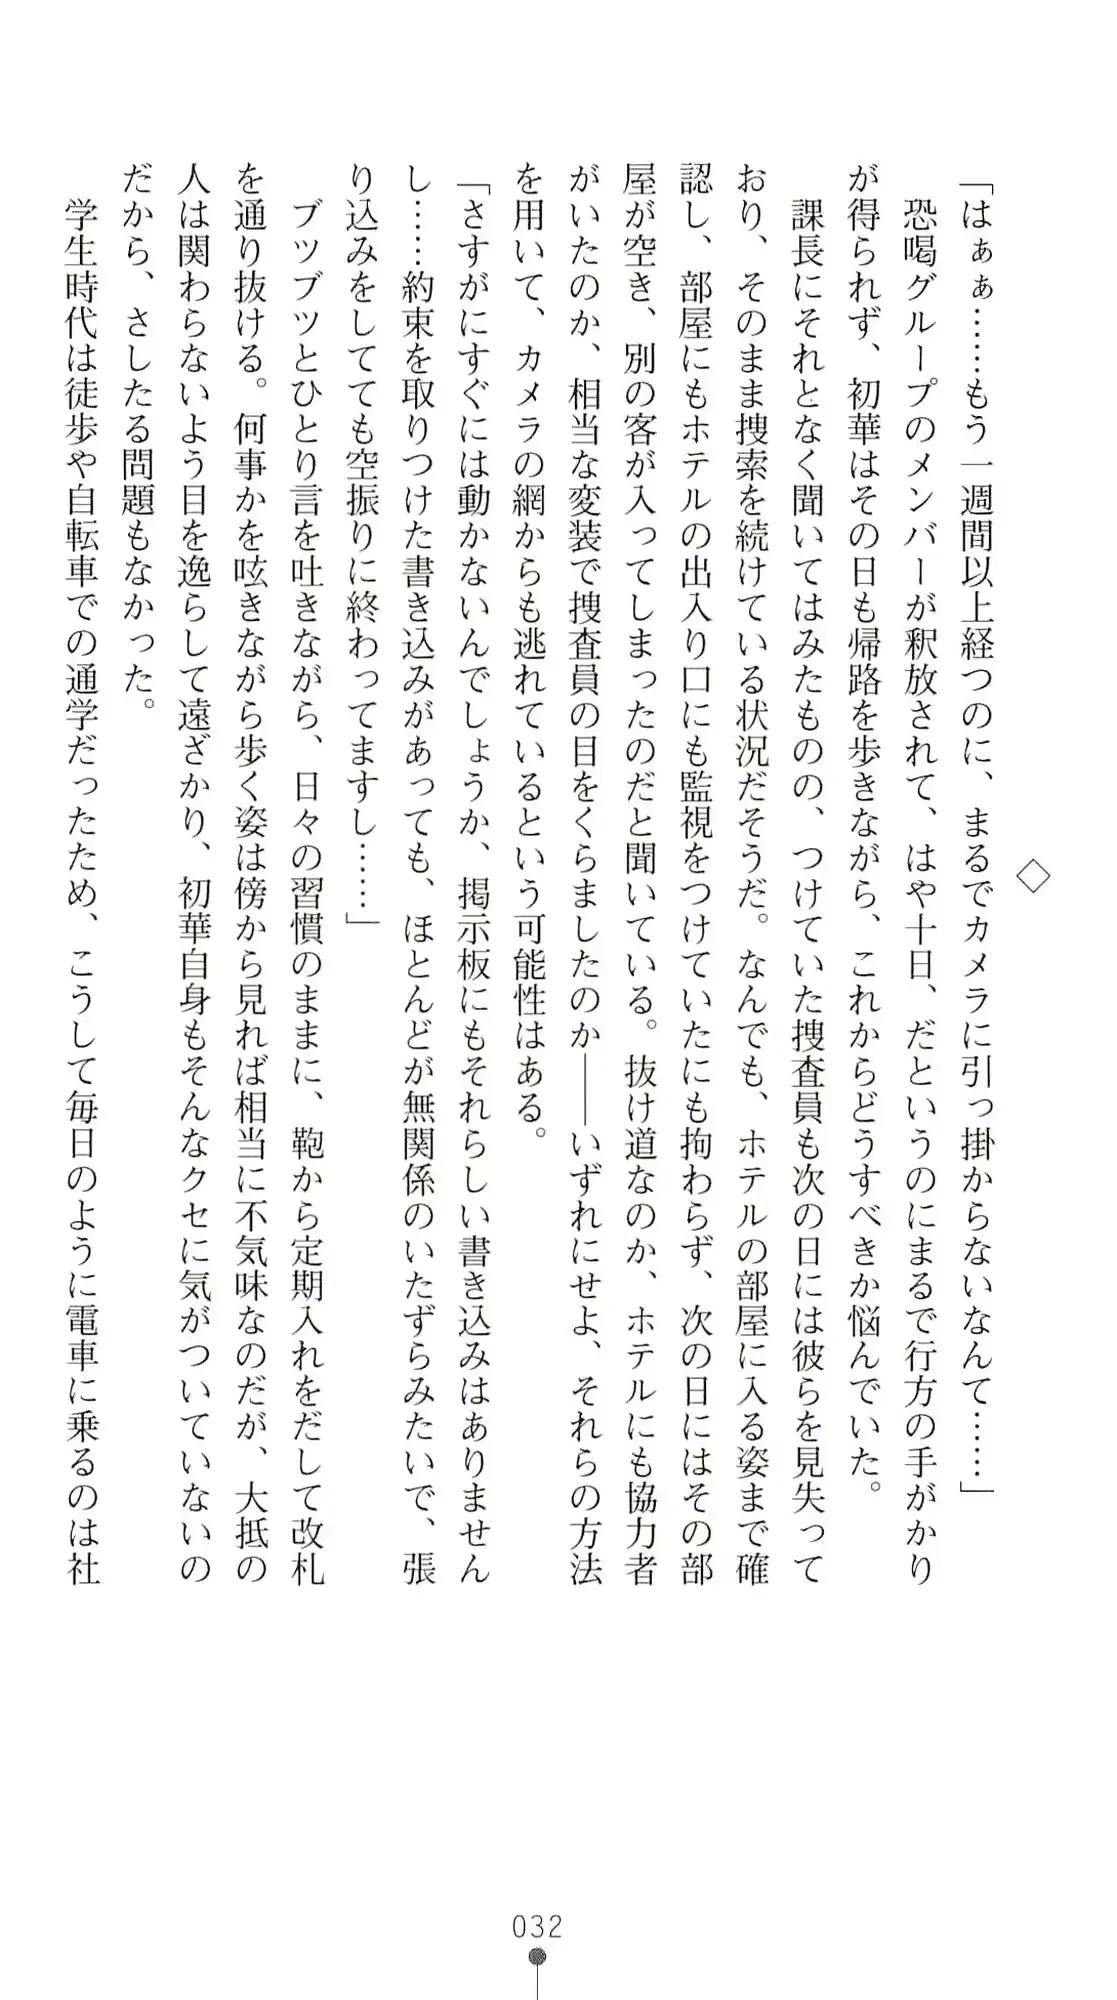 ◇
「はぁぁ……もう一週間以上経つのに、まるでカメラに引っ掛からないなんて……」
　恐喝グループのメンバーが釈放されて、はや十日、だというのにまるで行方の手がかり
が得られず、初華はその日も帰路を歩きながら、これからどうすべきか悩んでいた。
　課長にそれとなく聞いてはみたものの、つけていた捜査員も次の日には彼らを見失って
おり、そのまま捜索を続けている状況だそうだ。なんでも、ホテルの部屋に入る姿まで確
認し、部屋にもホテルの出入り口にも監視をつけていたにも拘わらず、次の日にはその部
屋が空き、別の客が入ってしまったのだと聞いている。抜け道なのか、ホテルにも協力者
がいたのか、相当な変装で捜査員の目をくらましたのか――いずれにせよ、それらの方法
を用いて、カメラの網からも逃れているという可能性はある。
「さすがにすぐには動かないんでしょうか、掲示板にもそれらしい書き込みはありません
し……約束を取りつけた書き込みがあっても、ほとんどが無関係のいたずらみたいで、張
り込みをしてても空振りに終わってますし……」
　ブツブツとひとり言を吐きながら、日々の習慣のままに、鞄から定期入れをだして改札
を通り抜ける。何事かを呟きながら歩く姿は傍から見れば相当に不気味なのだが、大抵の
人は関わらないよう目を逸らして遠ざかり、初華自身もそんなクセに気がついていないの
だから、さしたる問題もなかった。
　学生時代は徒歩や自転車での通学だったため、こうして毎日のように電車に乗るのは社
032